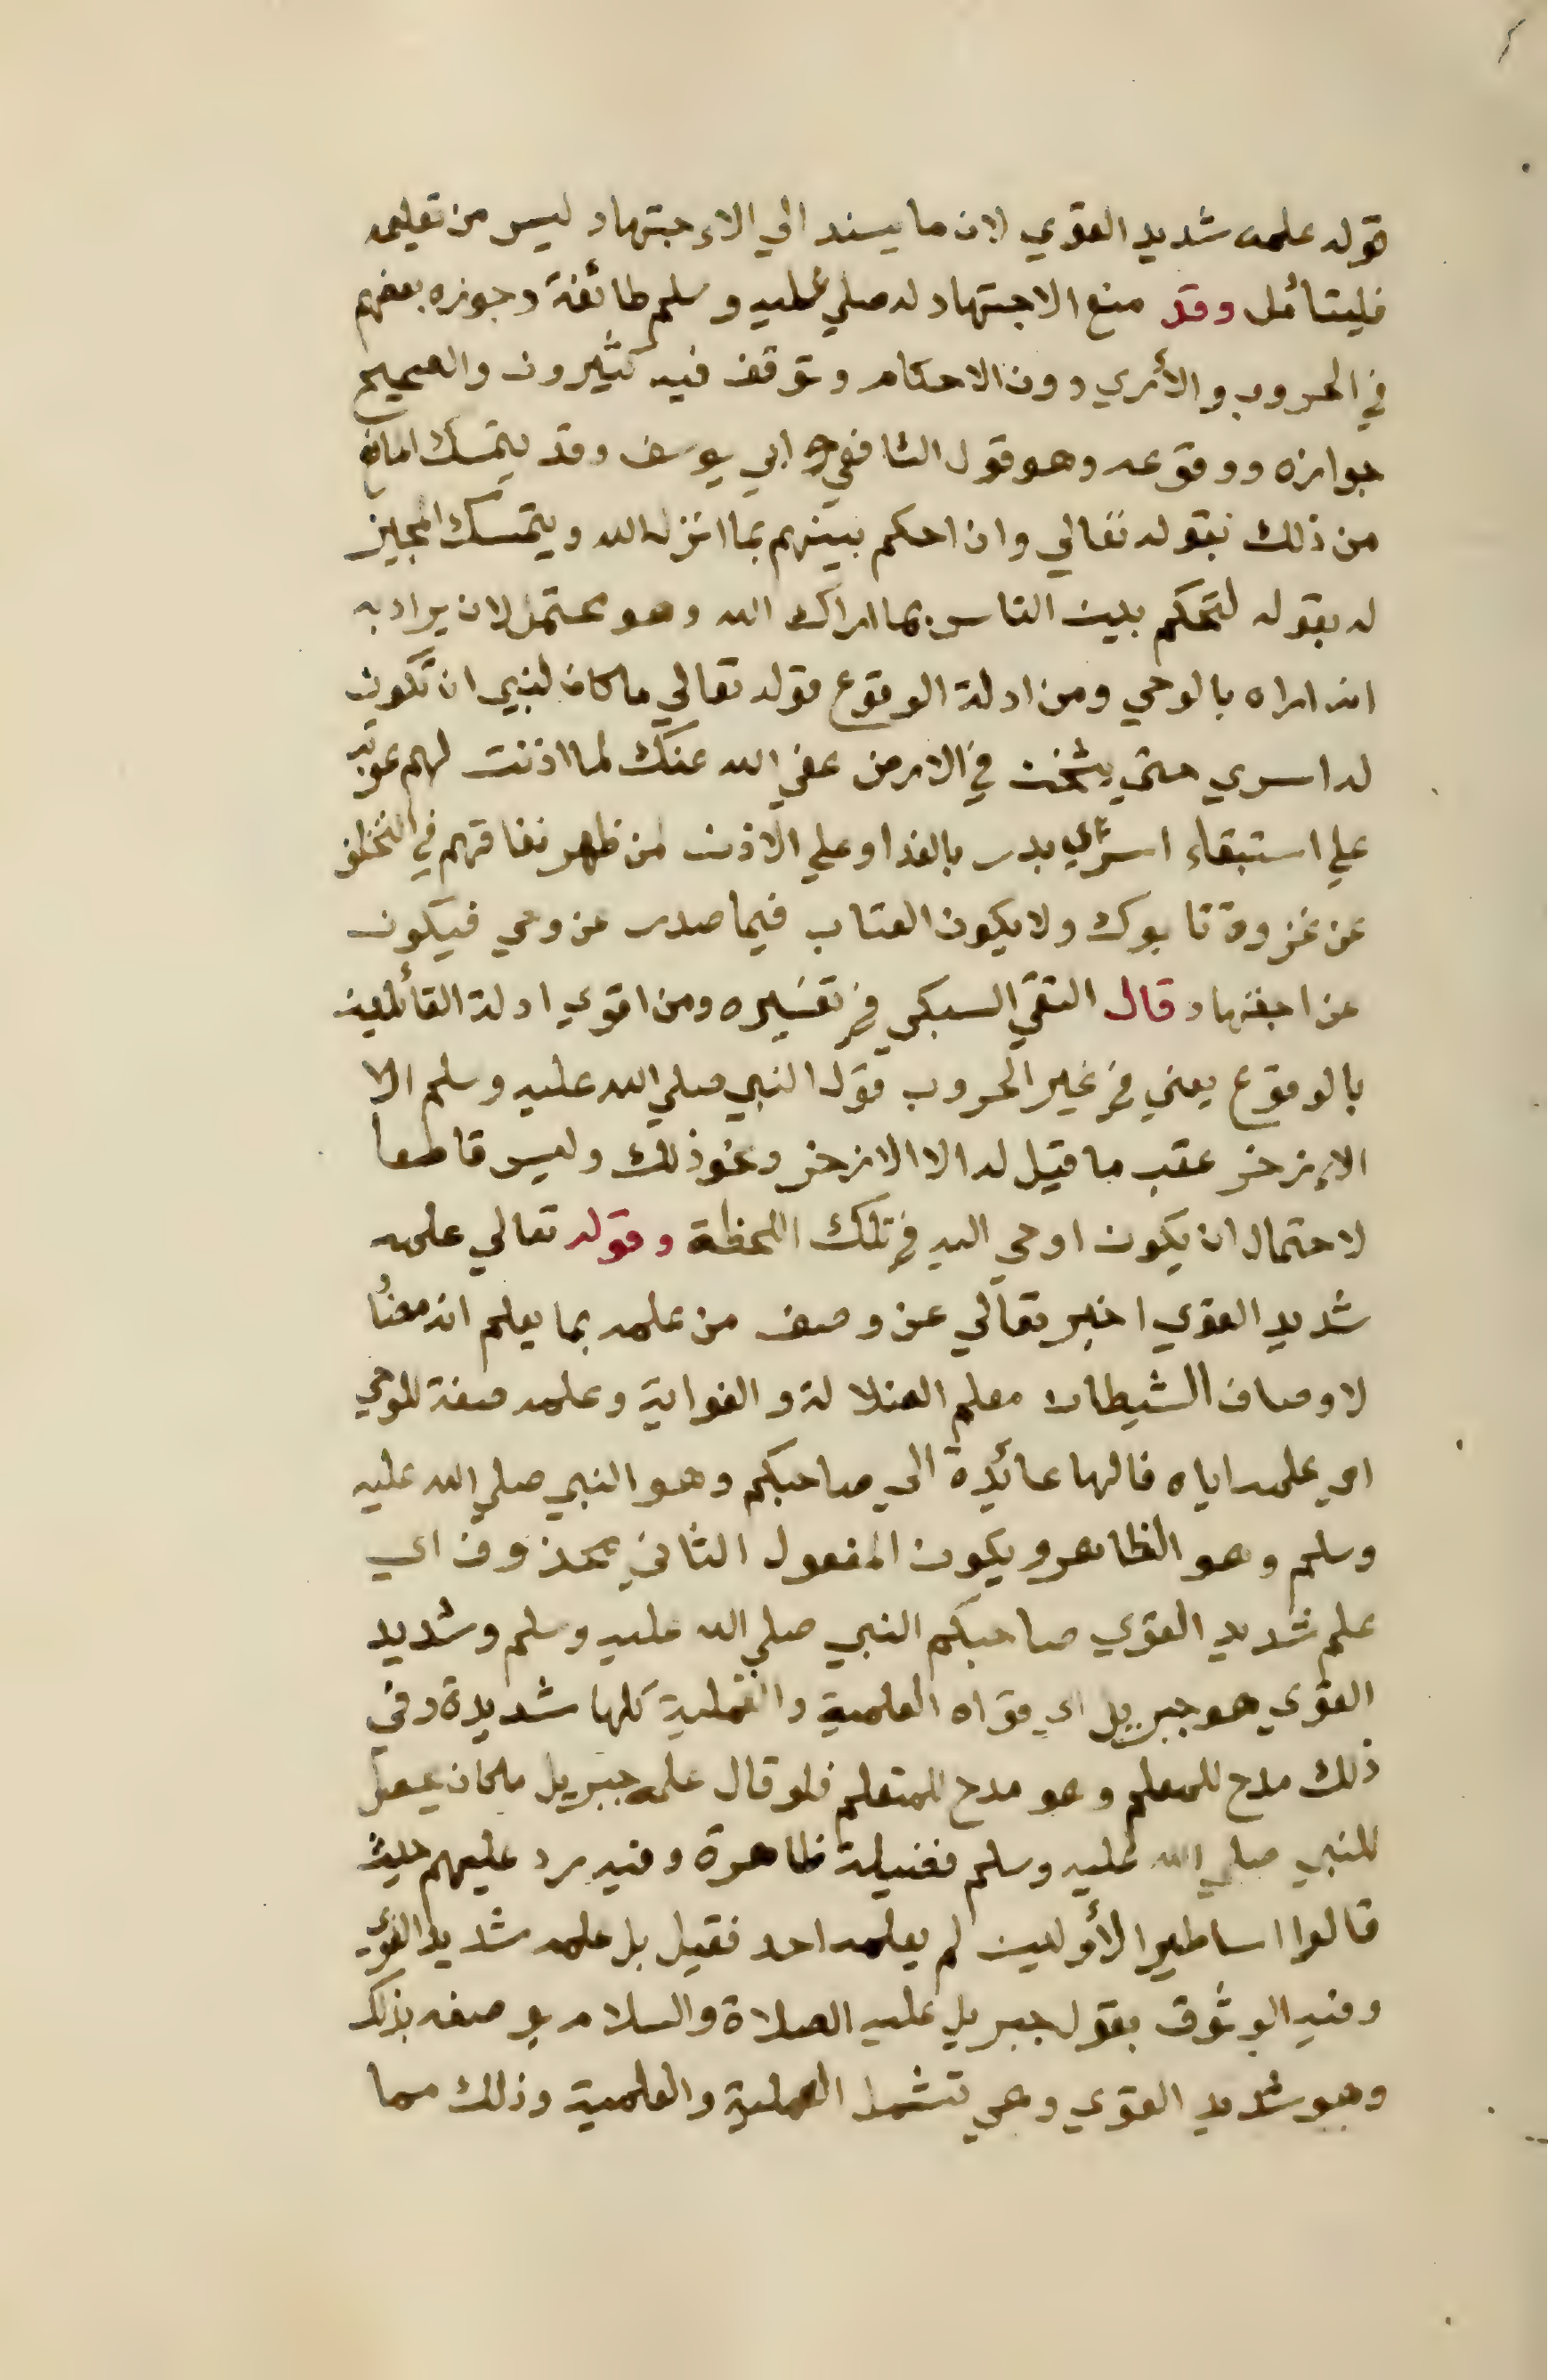 قوله علمه شديد القوي لان ما يسند الي الاءجتهاد ليس من تعليمه
فليتأمل وقد منع الاجتهاد له صلي عليه وسلم طائفة وجوزه بعضهم
في الحروب والأري دون الاحكام وتوقف فيه كثيرون والصحيح
جوازه ووقوعه وهو قول الشافعي و ابي يوسف وقد يتمسك المانع
من ذلك بقوله تعالي وان احكم بينهم بما انزل الله ويتمسك المجيز
له بقوله لتحكم بين الناس بما اراك الله وهو محتمل لان يراد به
انه اراه بالوحي ومن ادلة الوقوع قوله تعالي ما كان لنبي ان تكون
له اسري حتي يثخن في الارض عفي الله عنك لما اذنت لهم عوتب
علي استبقاء اسراي بدر بالفدا وعلي الاذن لمن ظهر نفاقهم في التخلف
عن غزوة تابوك ولا يكون العتاب فيما صدر عن وحي فيكون
عن اجتهاد قال التقي السبكي في تفسيره ومن اقوي ادلة القائلين
بالوقوع يعني في غير الحروب قول النبي صلي الله عليه وسلم الا
الاءزخر عقب ما قيل له الا الازخر ونحو ذلك وليس قاطعا
لاحتمال ان يكون اوحي اليه في تلك اللحظة وقوله تعالي علمه
شديد القوي اخبر تعالي عن وصف من علمه بما يعلم انه
لاوصاف الشيطان معلم الضلالة والغواية وعلمه صفة للوحي
اي علمه اياه فالها عائدة الي صاحبكم وهو النبي صلي الله عليه
وسلم وهو الظاهر ويكون المفعول الثاني محذوف اي
علم شديد القوي صاحبكم النبي صلي الله عليه وسلم وشديد
القوي هو جبريل اي قواه العلمية والعملية كلها شديدة وفي
ذلك مدح للمعلم وهو مدح للمتعلم فلو قال علمه جبريل ما كان يحصل
للنبي صلي الله عليه وسلم فضيلة ظاهرة وفيه رد عليهم حيث
قالوا اساطير الأولين لم يعلمه احد فقيل بل علمه شديد القوي
وفيه الوثوق بقول جبريل عليه الصلاة والسلام بوصفه بذلك
وهو شديد القوي وهي تشمل العملية والعلمية وذلك مما